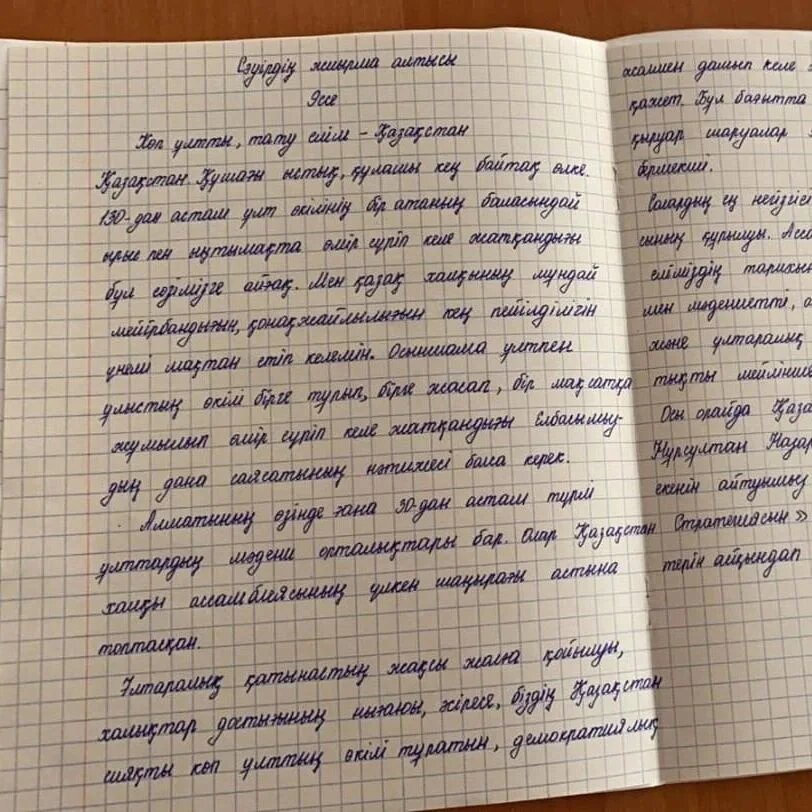 Сәуірдің жиырма алтысы
Эссе
Көп ұлтты, тату елім - Қазақстан
Қазақстан. Құшағы ыстық, құлашы кең байтақ өлке.
130-дан астам ұлт өкілінің бір атаның баласындай
ырыс пен ынтымақта өмір сүріп келе жатқандығы
бұл сөзімізге айғақ. Мен қазақ халқының мұндай
мейірбандығын, қонақжайлылығын кең пейілділігін
үнемі мақтан етіп келемін. Осыншама ұлтпен
ұлыстың өкілі бірге тұрып, бірге жасап, бір мақсатқа
жұмылып өмір сүріп келе жатқандығы Елбасымыз-
дың дана саясатының нәтижесі болса керек.
Алматының өзінде ғана 30-дан астам түрлі
ұлттардың мәдени орталықтары бар. Олар Қазақстан
халқы ассамблеясының үлкен шаңырағы астына
топтасқан.
Ұлтаралық қатынастың жақсы жолға қойылуы,
халықтар достығының нығаюы, әсіресе, біздің Қазақстан
сияқты көп ұлттың өкілі тұратын, демократиялық
жолмен дамып келе
қажет. Бұл бағытта
қыруар шаруалар
бермекші.
Солардың ең негізгісі
сының құрылуы. Асса
еліміздің тарихын
мен мәдениетті, а
және ұлтаралық
тықты мейлінше
Осы орайда Қаза
Нұрсұлтан Назар
екенін айтуымыз
Стратегиясын»
терін айқындап